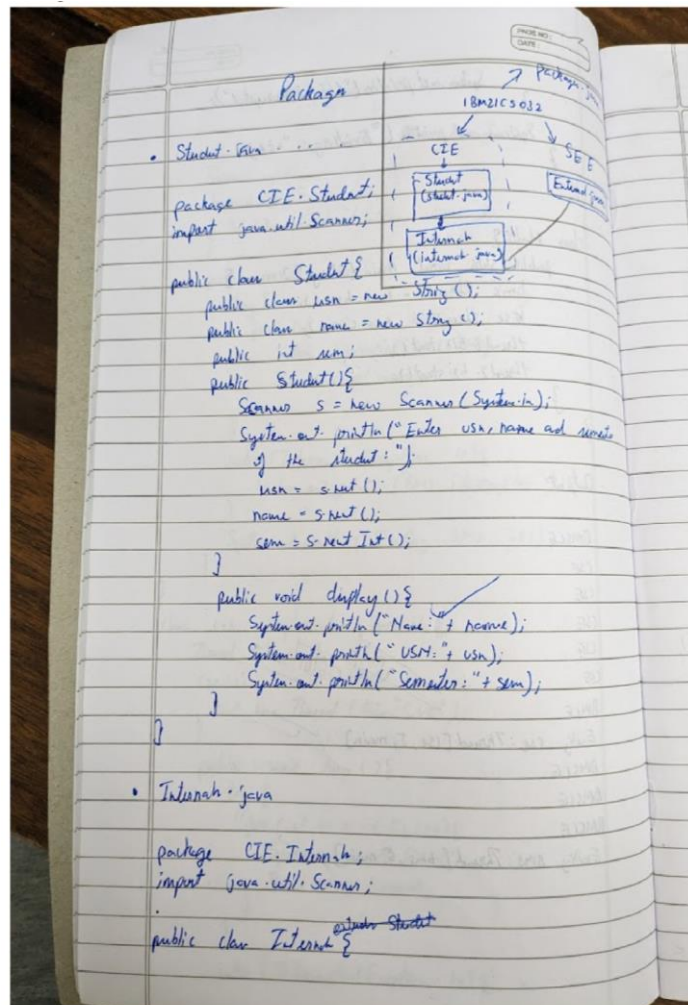 PAGE NO:
DATE:
Package
package.java
1BM21CS032
CIE
SEE
Student
(student.java)
External.java
Internals
(internal.java)
• Student.java
package CIE.Student;
import java.util.Scanner;
public class Student{
public class usn = new String();
public class name = new String();
public int sem;
public Student(){
Scanner s = new Scanner(System.in);
System.out.println("Enter usn, name ad semester
of the student:");
usn = s.next();
name = s.next();
sem = s.nextInt();
}
public void display(){
System.out.println("Name: + name);
System.out.println("USN:"+ usn);
System.out.println("Semester:"+ sem);
}
}
• Internals.java
package CIE.Internals;
import java.util.Scanner;
extends Student
public class Internals {